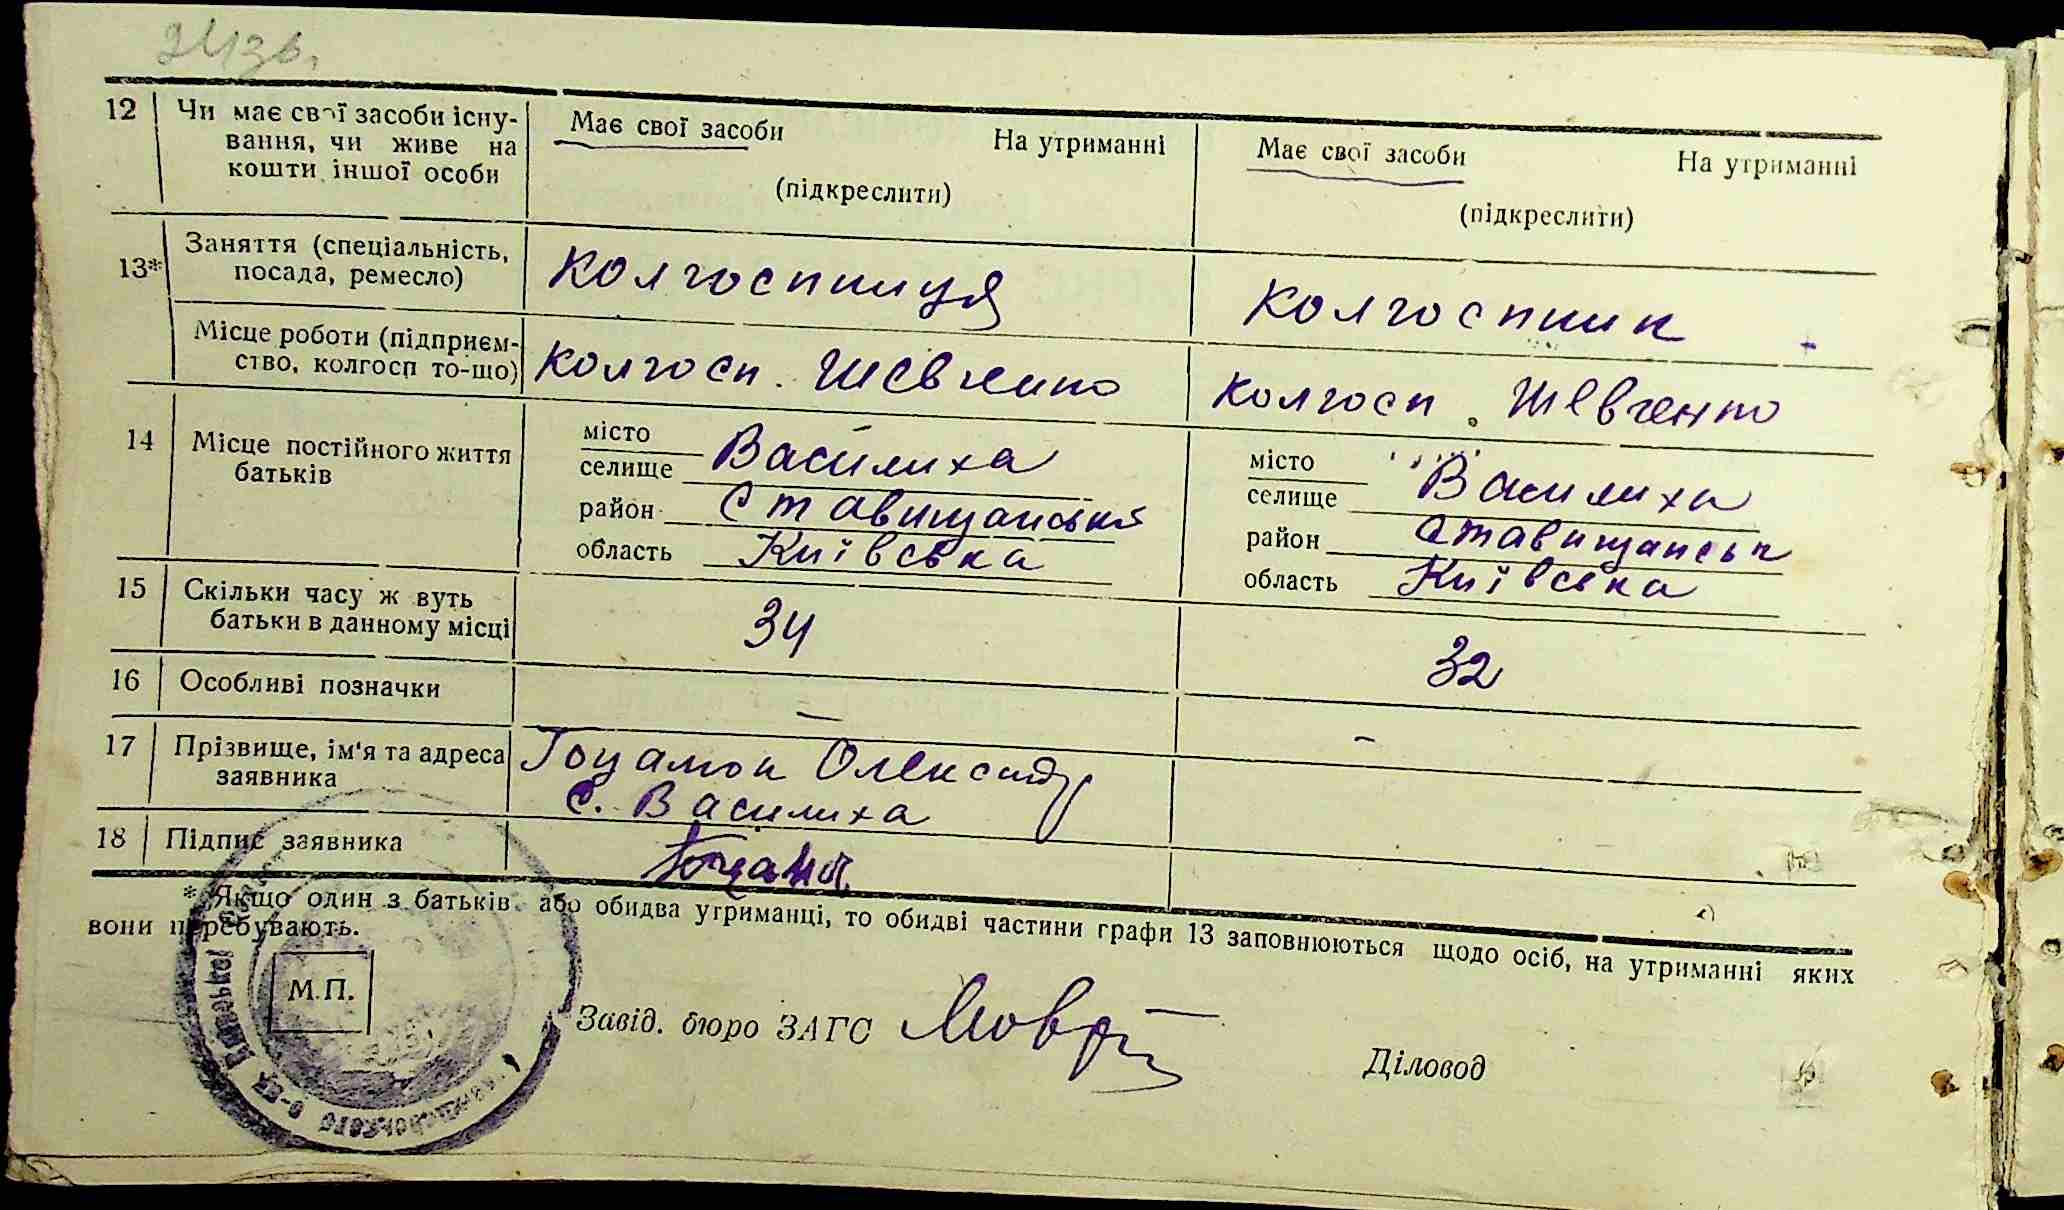 24зв.
12 Чи має свої засоби існу-
вання, чи живе на
кошти іншої особи
Має свої засоби На утриманні
(підкреслити)
Має свої засоби На утриманні
(підкреслити)
13* Заняття (спеціальність,
посада, ремесло)
Колгоспниця
Колгоспник
Місце роботи (підприєм-
ство, колгосп то-що)
Колгосп. Шевченко
Колгосп. Шевченко
14 Місце постійного життя
батьків
місто
селище Василиха
район Ставищанська
область Київська
місто
селище Василиха
район Ставищанськ
область Київська
15 Скільки часу ж вуть
батьки в данному місці
34
32
16 Особливі позначки
–
–
17 Прізвище, ім'я та адреса
заявника
Гоцамок Олександр
с. Василиха
18 Підпис заявника
* Якщо один з батьків або обидва утриманці, то обидві частини графи 13 заповнюються щодо осіб, на утриманні яких
вони перебувають.
М.П.
Завід. бюро ЗАГС
Діловод